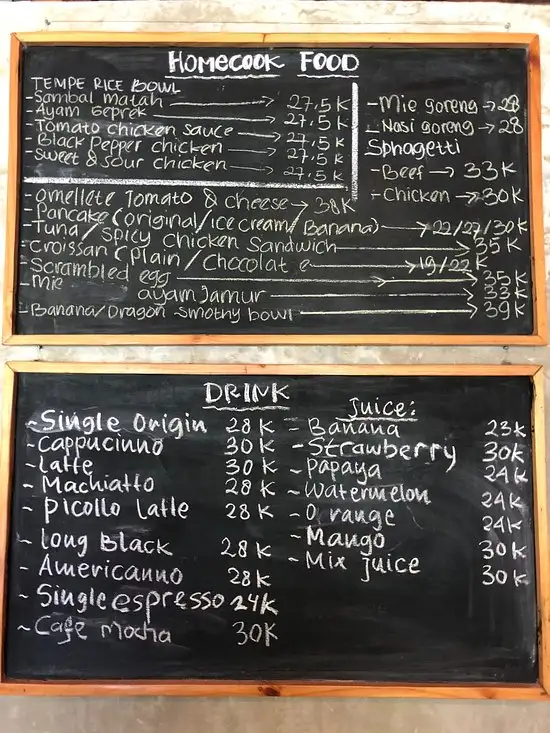 HOMECOOK FOOD
TEMPE RICE BOWL
- Sambal matah → 27,5 K
- Ayam Geprek → 27,5 K
- Tomato chicken sauce → 27,5 K
- Black Pepper chicken → 27,5 K
- Sweet & Sour chicken → 27,5 K
- Mie goreng → 28
- Nasi goreng → 28
Sphagetti
- Beef → 33K
- Chicken → 30K
- Omellete Tomato & cheese → 38K
- Pancake (original/ice cream/Banana) → 22/27/30K
- Tuna / Spicy Chicken Sandwich → 35K
- Croissan (Plain / Chocolate → 19/22K
- Scrambled egg → 35K
- Mie ayam Jamur → 33K
- Banana/Dragon Smothy bowl → 39K
DRINK
~ Single Origin 28K
- Cappucinno 30K
- Latte 30K
~ Machiatto 28K
- Picollo Latte 28K
- Long Black 28K
- Americanno 28K
~ Single espresso 24K
~ Cafe mocha 30K
Juice:
- Banana 23K
- Strawberry 30K
- Papaya 24K
~ Watermelon 24K
- Orange 24K
- Mango 30K
- Mix Juice 30K